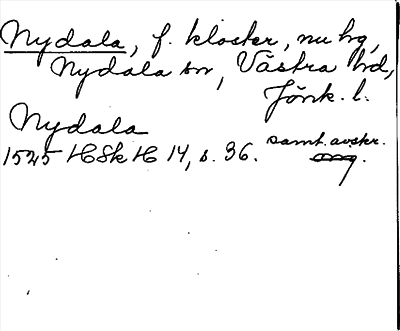 Nydala, f. kloster, nu hg,
Nydala sn, Västra hd,
Jönk. l.
Nydala
1525 HSkH 14, s. 36. samt. avskr.